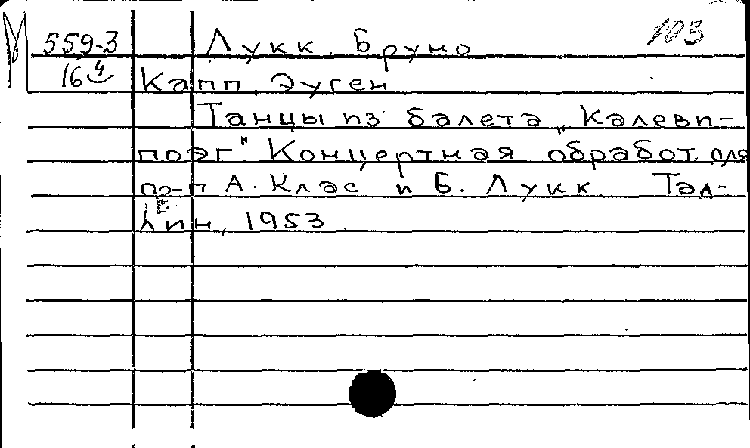 М 559-3 Лукк, Бруно 103
16 4 Капп, Эуген
Танцы из балета „Калеви-
поэг". Концертная обработ. для
ф-п А. Клас и Б. Лукк. Тал-
лин, 1953